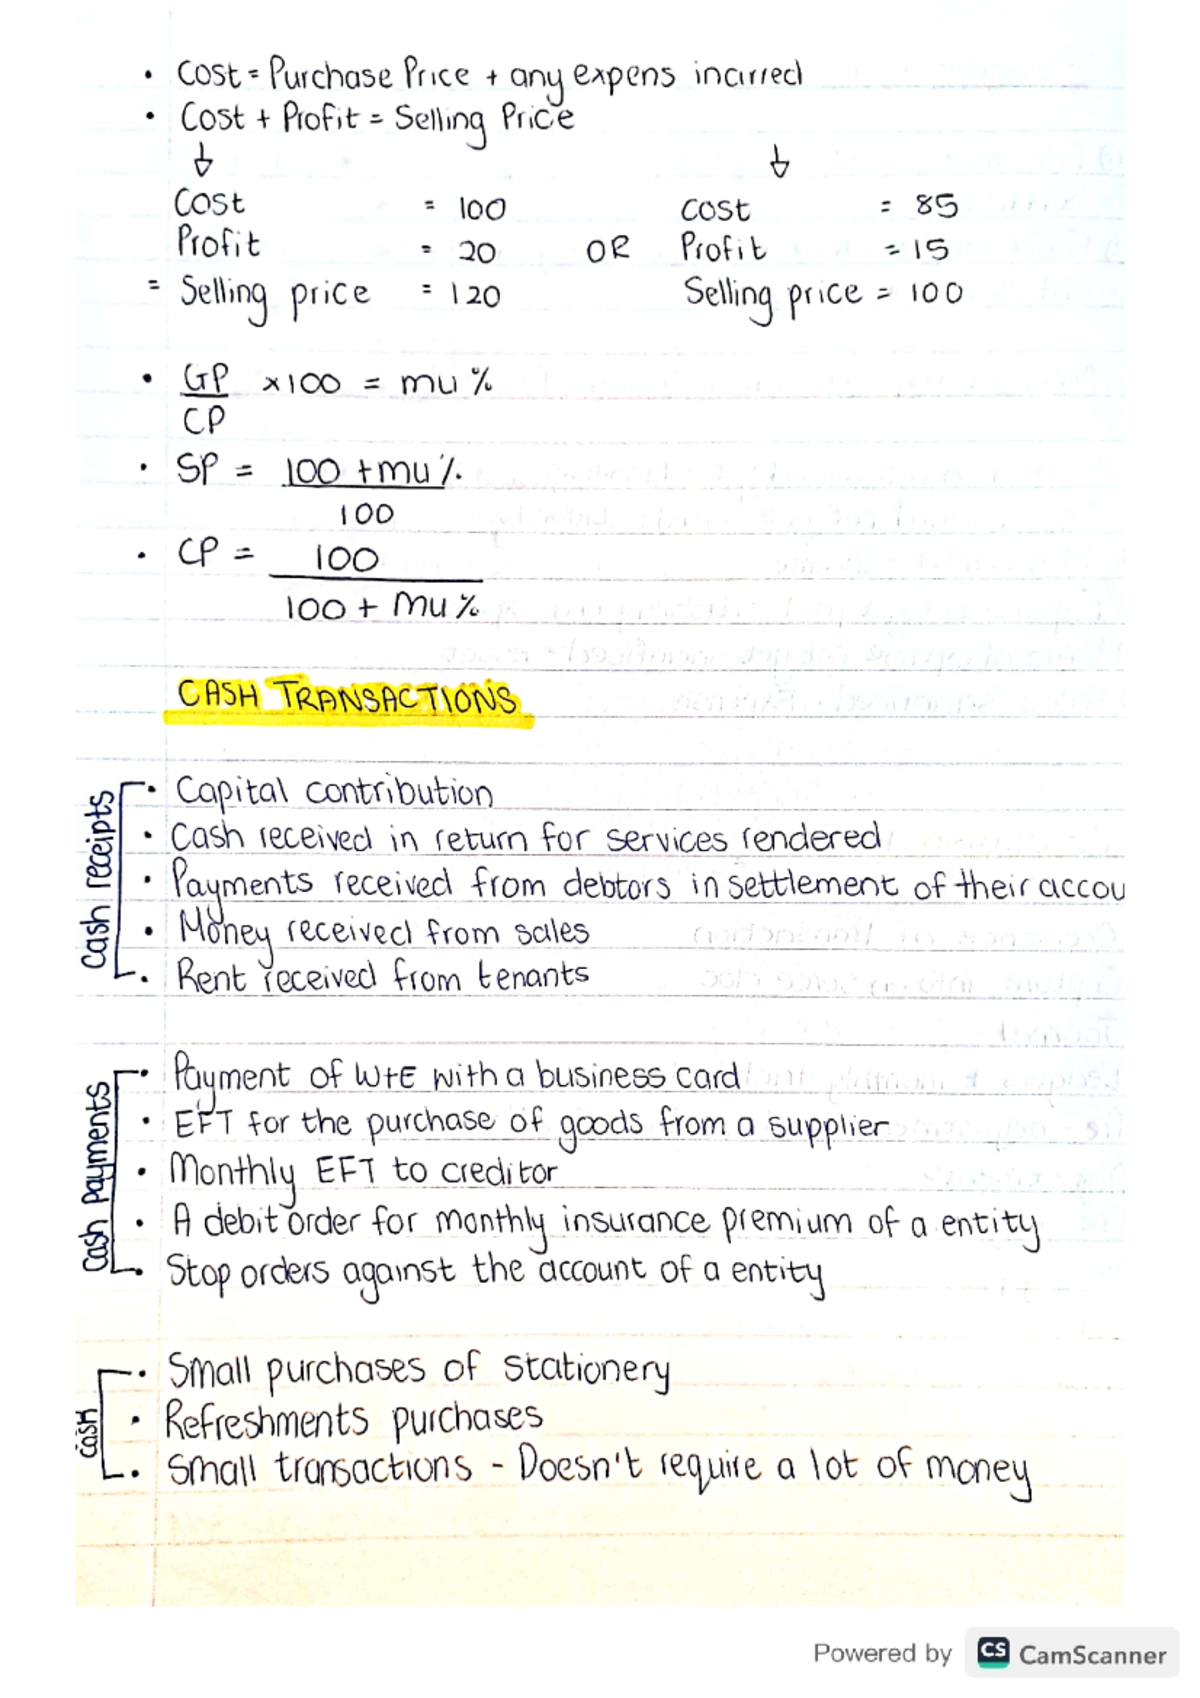 • Cost = Purchase Price + any expens incurred
• Cost + Profit = Selling Price
↓ ↓
Cost = 100 Cost = 85
Profit = 20 OR Profit = 15
= Selling price = 120 Selling price = 100
• GP x100 = mu %
CP
• SP = 100 + mu %
100
• CP = 100
100 + mu %
CASH TRANSACTIONS
Cash receipts
• Capital contribution
• Cash received in return for services rendered
• Payments received from debtors in settlement of their accou
• Money received from sales
• Rent received from tenants
Cash Payments
• Payment of W+E with a business card
• EFT for the purchase of goods from a supplier
• Monthly EFT to creditor
• A debit order for monthly insurance premium of a entity
• Stop orders against the account of a entity
Cash
• Small purchases of stationery
• Refreshments purchases
• Small transactions - Doesn't require a lot of money
Powered by CS CamScanner